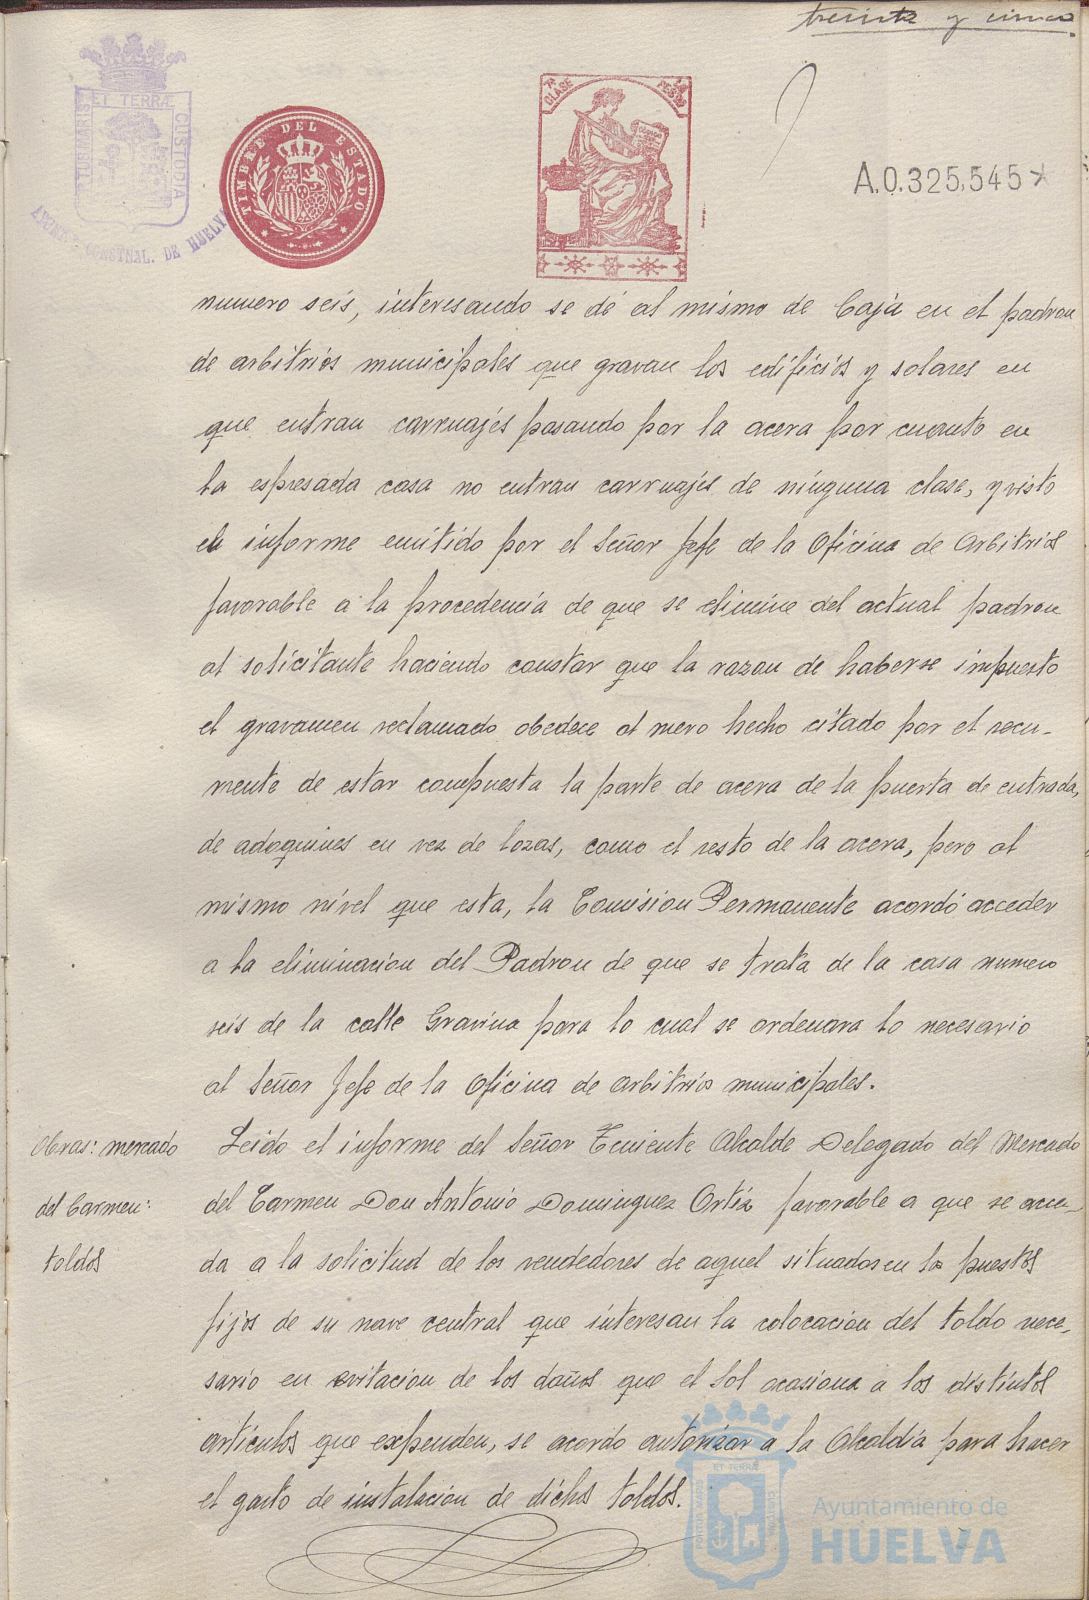 treinta y cinco.
PORTUS MARIS ET TERRÆ CUSTODIA
AYUNT. CONSTNAL. DE HUELVA
TIMBRE DEL ESTADO
7ª CLASE PESTS
A.0.325,545
numero seis, interesando se dé al mismo de baja en el padron
de arbitrios municipales que gravan los edificios y solares en
que entran carruajes pasando por la acera por cuanto en
la espresada casa no entran carruajes de ninguna clase, y visto
el informe emitido por el Señor Jefe de la Oficina de Arbitrios
favorable a la procedencia de que se elimine del actual padron
al solicitante haciendo constar que la razon de haberse impuesto
el gravamen reclamado obedece al mero hecho citado por el recu-
rrente de estar compuesta la parte de acera de la puerta de entrada,
de adoquines en vez de lozas, como el resto de la acera, pero al
mismo nivel que esta, la Comision Permanente acordó acceder
a la eliminacion del Padron de que se trata de la casa numero
seis de la calle Gravina para lo cual se ordenara lo necesario
al Señor Jefe de la Oficina de arbitrios municipales.
Obras: mercado
del Carmen:
toldos
Leido el informe del Señor Teniente Alcalde Delegado del Mercado
del Carmen Don Antonio Dominguez Ortiz favorable a que se acce-
da a la solicitud de los vendedores de aquel situados en los puestos
fijos de su nave central que interesan la colocacion del toldo nece-
sario en evitacion de los daños que el Sol ocasiona a los distintos
articulos que expenden, se acordo autorizar a la Alcaldia para hacer
el gasto de instalacion de dichos toldos.
PORTUS MARIS ET TERRÆ CUSTODIA
Ayuntamiento de
HUELVA